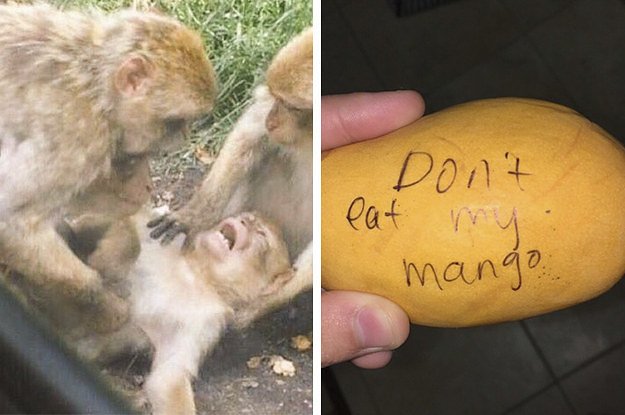 Don't
eat my
mango